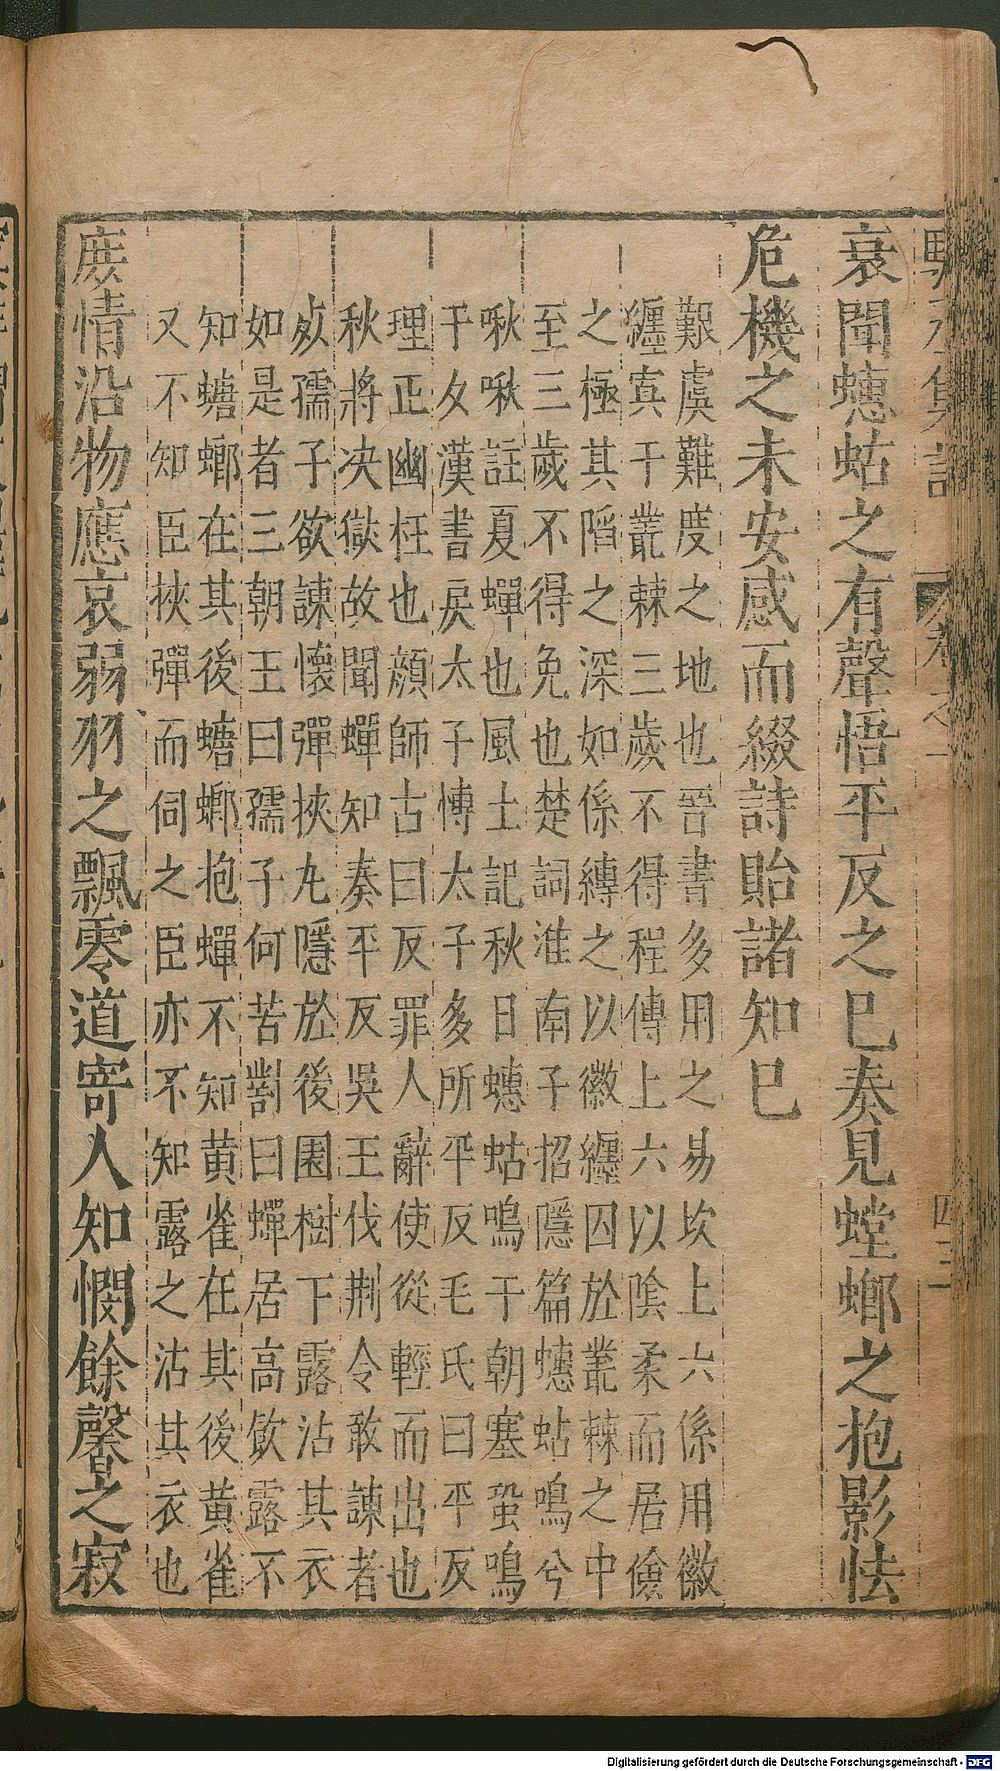 衰聞蟪蛄之有聲悟平反之巳奏見螳螂之抱影怯
危機之未安感而綴詩貽諸知巳
艱虞難度之地也晉書多用之易坎上六係用徽
纆寘于叢棘三歲不得程傳上六以陰柔而居儉
之極其陷之深如係縛之以徽纆囚於叢棘之中
至三歲不得免也楚詞淮南子招隱篇蟪蛄鳴兮
啾啾註夏蟬也風土記秋日蟪蛄鳴于朝塞蛩鳴
于夕漢書戾太子慱太子多所平反毛氏曰平反
理正幽枉也顔師古曰反罪人辭使從輕而出也
秋將决獄故聞蟬知奏平反吳王伐荆令敢諫者
死孺子欲諫懷彈挾九隱於後園樹下露沾其衣
如是者三朝王曰孺子何苦對曰蟬居高飲露不
知蟷螂在其後蟷螂抱蟬不知黄雀在其後黄雀
又不知臣挾彈而伺之臣亦不知露之沾其衣也
庶情沿物應哀弱羽之飄零道寄人知憫餘馨之寂
四三
Digitalisierung gefördert durch die Deutsche Forschungsgemeinschaft - DFG